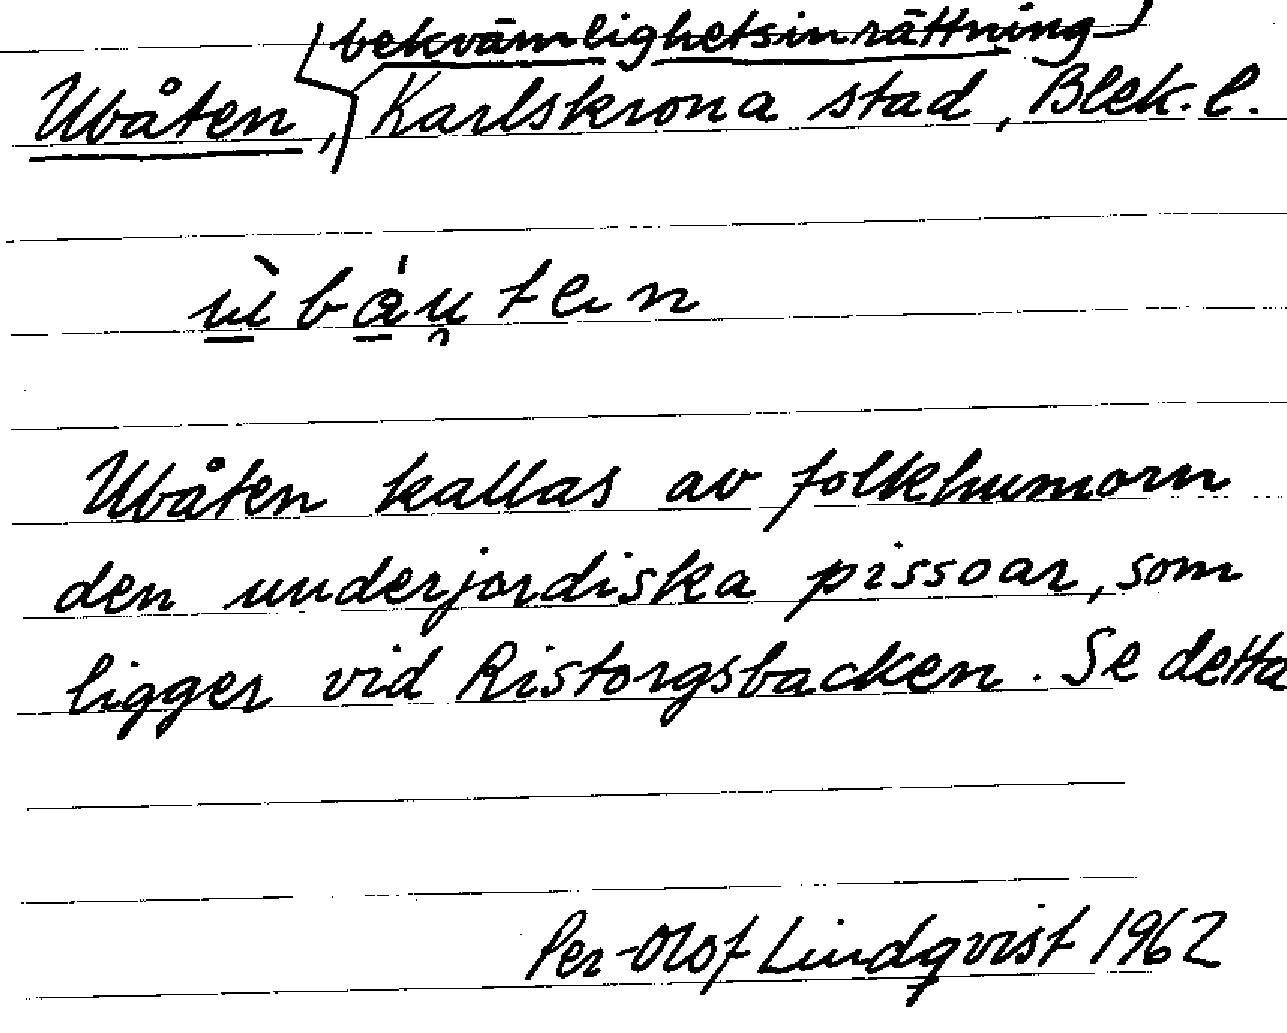 bekvämlighetsinrättning
Ubåten, Karlskrona stad, Blek. l.
ùbáu̯ten
Ubåten kallas av folkhumorn
den underjordiska pissoar, som
ligger vid Ristorgsbacken. Se detta
Per-Olof Lindqvist 1962